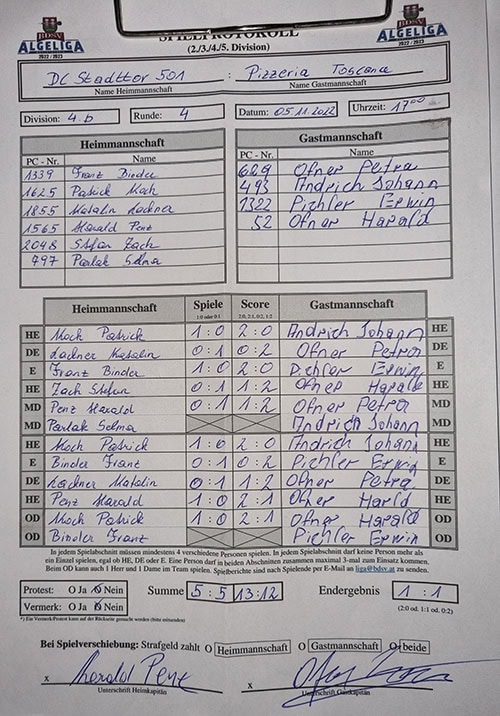 BDSV
ALGELIGA
2022/2023
SPIELPROTOKOLL
(2./3./4./5. Division)
BDSV
ALGELIGA
2022/2023
DC Stadttor 501 : Pizzeria Toscana
Name Heimmannschaft Name Gastmannschaft
Division: 4.b Runde: 4 Datum: 05.11.2022 Uhrzeit: 17°°
Heimmannschaft Gastmannschaft
PC - Nr. Name PC - Nr. Name
1339 Franz Binder 629 Ofner Petra
1625 Patrick Koch 493 Andrich Johann
1855 Katalin Ladna 1322 Pichler Erwin
1565 Harald Penz 52 Ofner Harald
2048 Stefan Zach
797 Parlak Selma
Heimmannschaft Spiele Score Gastmannschaft
1:0 oder 0:1 2:0, 2:1, 0:2, 1:2
HE Koch Patrick 1:0 2:0 Andrich Johann HE
DE Ladner Katalin 0:1 0:2 Ofner Petra DE
E Franz Binder 1:0 2:0 Pichler Erwin E
HE Zach Stefan 0:1 1:2 Ofner Harald HE
MD Penz Harald 0:1 1:2 Ofner Petra MD
MD Parlak Selma Andrich Johann MD
HE Koch Patrick 1:0 2:0 Andrich Johann HE
E Binder Franz 0:1 0:2 Pichler Erwin E
DE Ladner Katalin 0:1 1:2 Ofner Petra DE
HE Penz Harald 1:0 2:1 Ofner Harald HE
OD Koch Patrick 1:0 2:1 Ofner Harald OD
OD Binder Franz Pichler Erwin OD
In jedem Spielabschnitt müssen mindestens 4 verschiedene Personen spielen. In jedem Spielabschnitt darf keine Person mehr als
ein Einzel spielen, egal ob HE, DE oder E. Eine Person darf in beiden Abschnitten zusammen maximal 3-mal zum Einsatz kommen.
Beim OD kann auch 1 Herr und 1 Dame im Team spielen. Spielberichte sind nach Spielende per E-Mail an liga@bdsv.at zu senden.
Protest: O Ja O Nein Summe 5:5 13:12 Endergebnis 1:1
Vermerk: O Ja O Nein (2:0 od. 1:1 od. 0:2)
*) Ein Vermerk/Protest kann auf der Rückseite gemacht werden (bitte mitsenden)
Bei Spielverschiebung: Strafgeld zahlt O Heimmannschaft O Gastmannschaft O beide
x Harald Penz x
Unterschrift Heimkapitän Unterschrift Gastkapitän